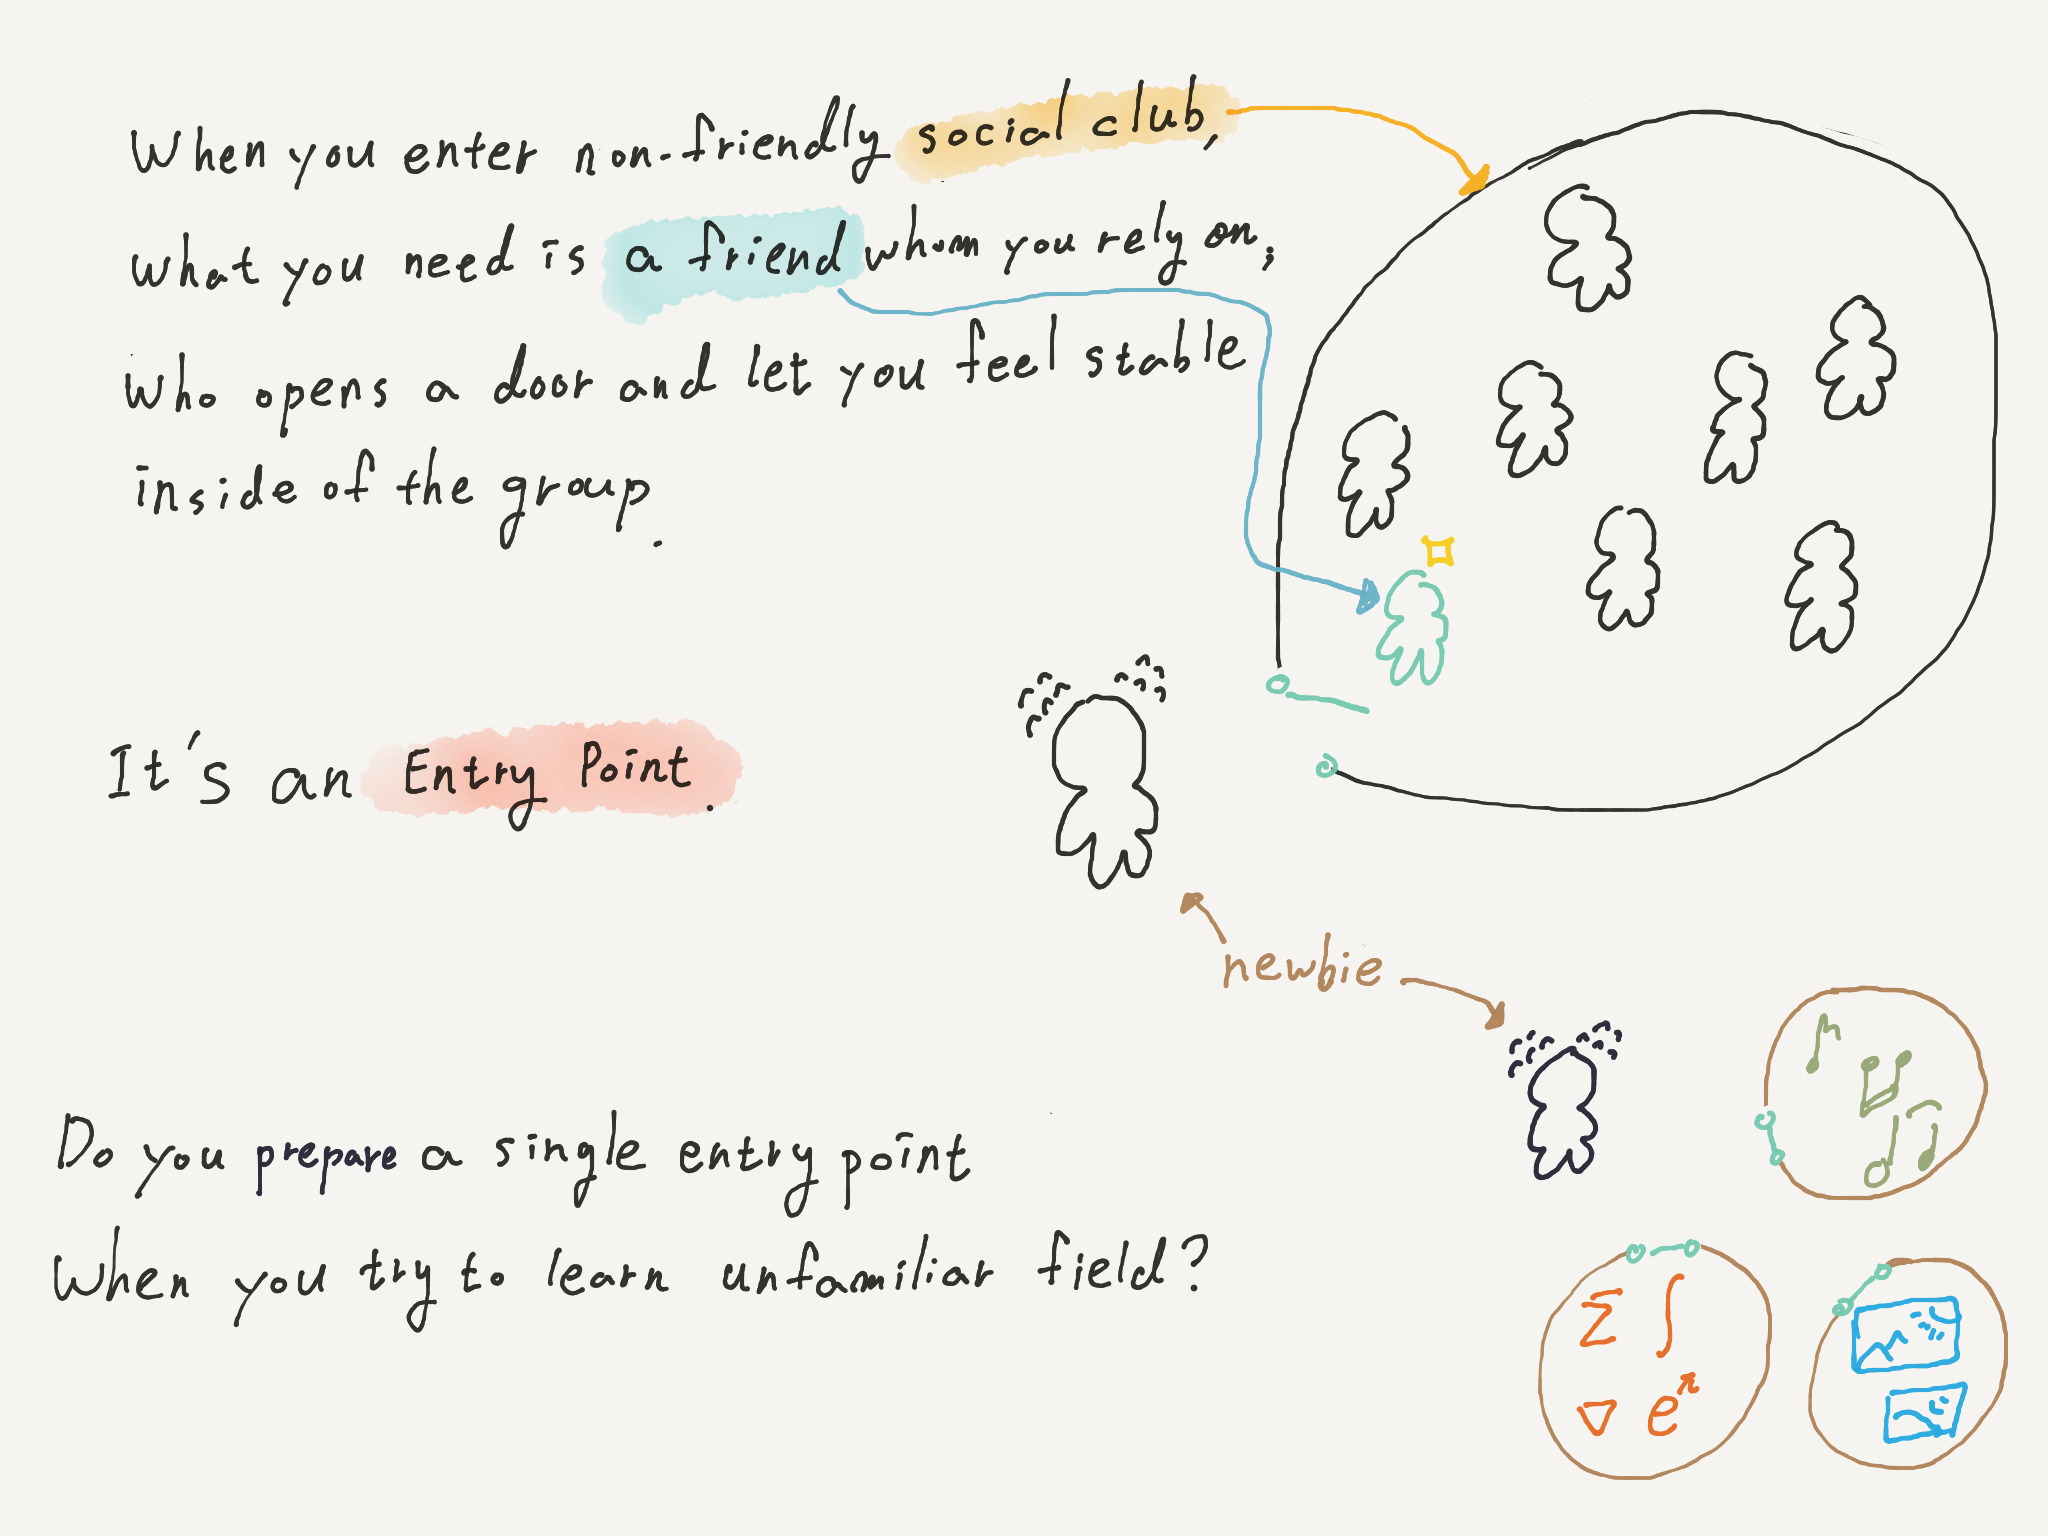 When you enter non-friendly social club,
what you need is a friend whom you rely on;
who opens a door and let you feel stable
inside of the group.
It's an Entry Point.
newbie
Do you prepare a single entry point
When you try to learn unfamiliar field?
Σ ∫
∇ e